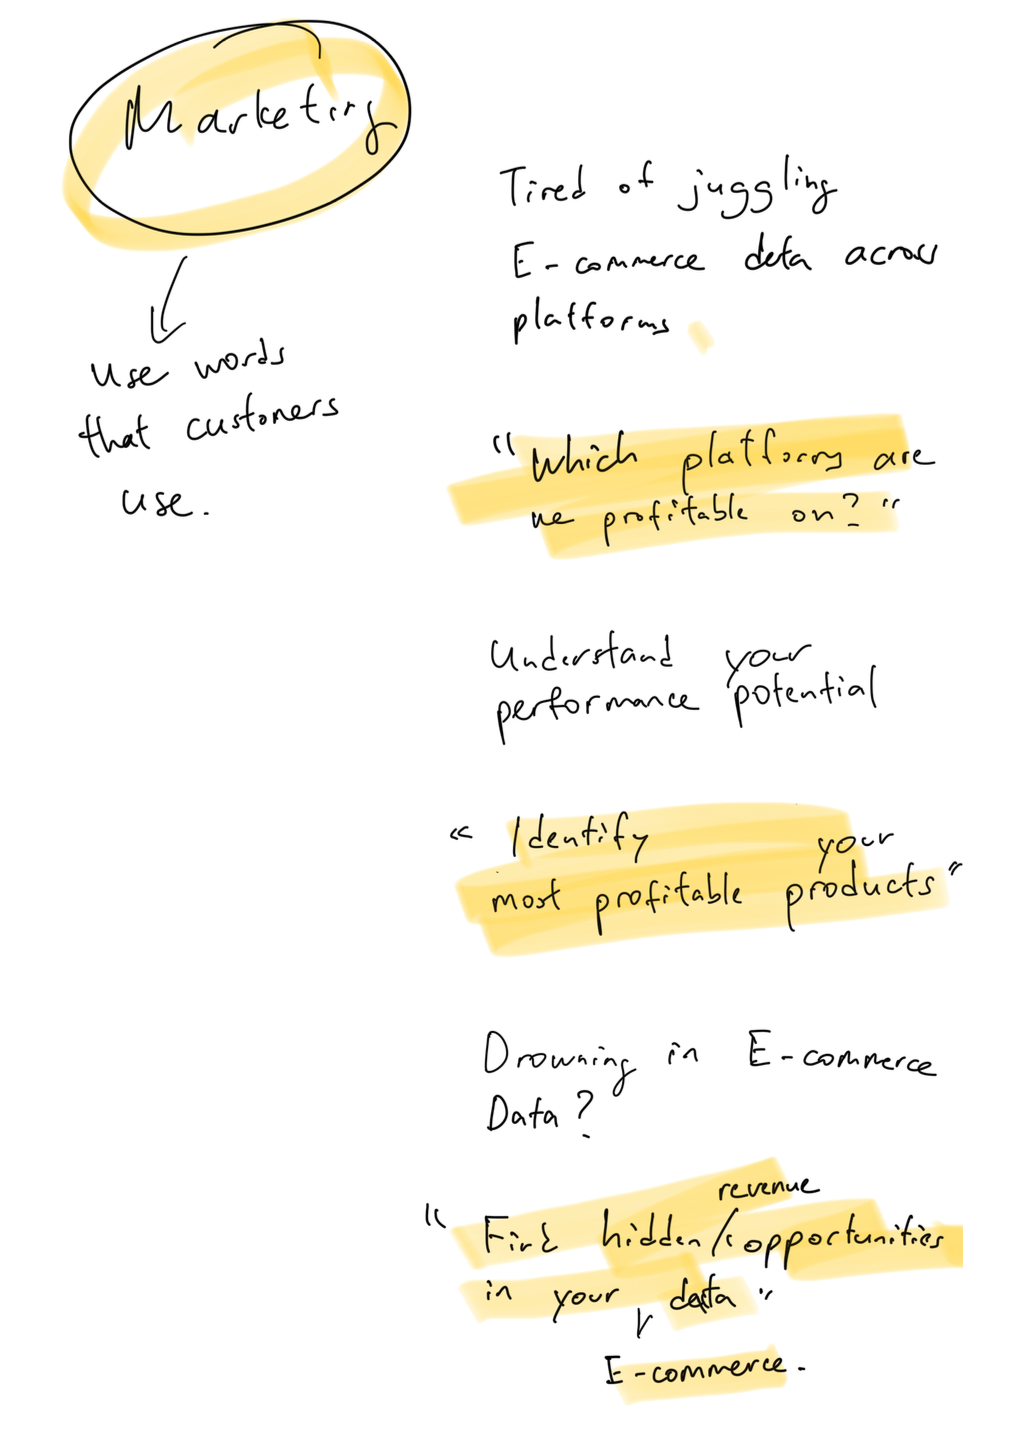 Marketing
Use words
that customers
use.
Tired of juggling
E-commerce data across
platforms
"Which platforms are
we profitable on?"
Understand your
performance potential
"Identify your
most profitable products"
Drowning in E-commerce
Data?
revenue
"Find hidden / opportunities
in your data"
E-commerce.